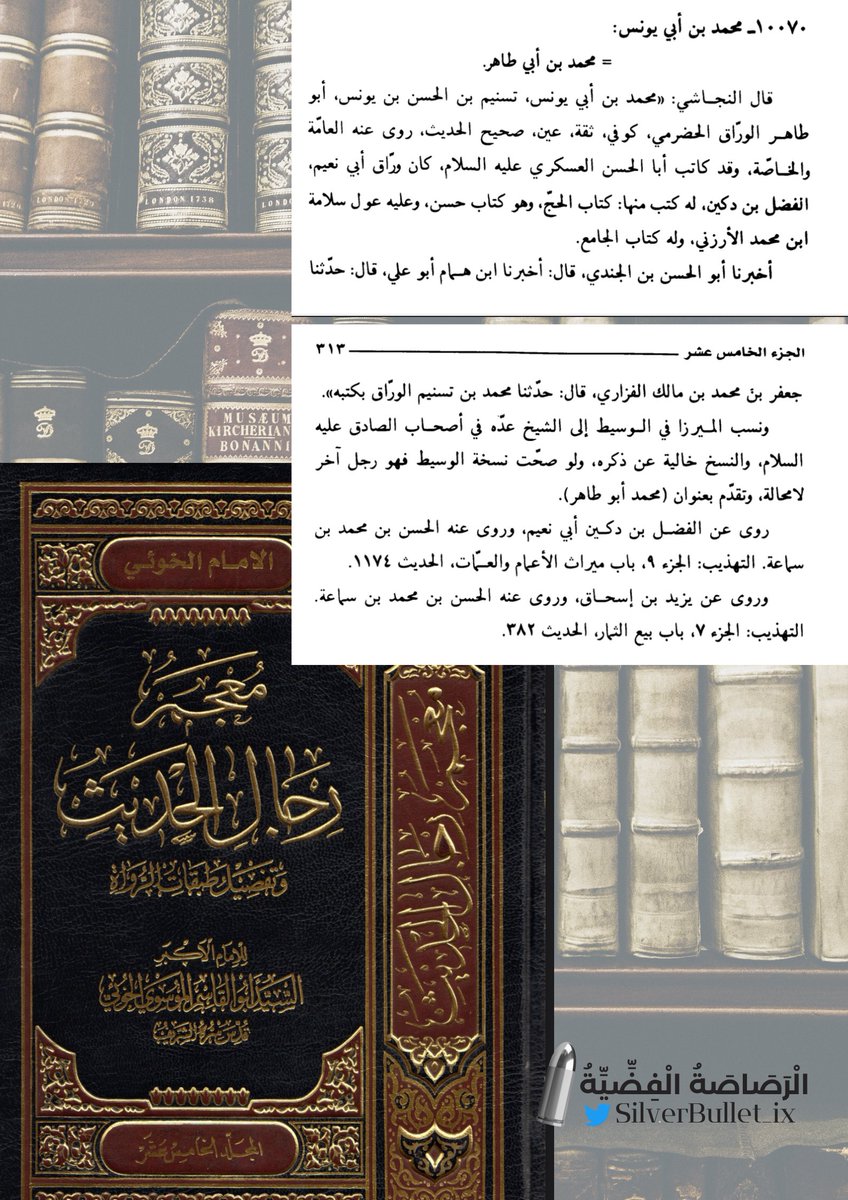 ١٠٠٧٠ـ محمد بن أبي يونس:
= محمد بن أبي طاهر.
قال النجاشي: «محمد بن أبي يونس، تسنيم بن الحسن بن يونس، أبو
طاهر الورّاق الحضرمي، كوفي، ثقة، عين، صحيح الحديث، روى عنه العامّة
والخاصّة، وقد كاتب أبا الحسن العسكري عليه السلام، كان ورّاق أبي نعيم،
الفضل بن دكين، له كتب منها: كتاب الحجّ، وهو كتاب حسن، وعليه عول سلامة
ابن محمد الأرزني، وله كتاب الجامع.
أخبرنا أبو الحسن بن الجندي، قال: أخبرنا ابن همام أبو علي، قال: حدّثنا
الجزء الخامس عشر ٣١٣
جعفر بن محمد بن مالك الفزاري، قال: حدّثنا محمد بن تسنيم الورّاق بكتبه».
ونسب الميرزا في الوسيط إلى الشيخ عدّه في أصحاب الصادق عليه
السلام، والنسخ خالية عن ذكره، ولو صحّت نسخة الوسيط فهو رجل آخر
لامحالة، وتقدّم بعنوان (محمد أبو طاهر).
روى عن الفضل بن دكين أبي نعيم، وروى عنه الحسن بن محمد بن
سماعة. التهذيب: الجزء ٩، باب ميراث الأعمام والعمّات، الحديث ١١٧٤.
وروى عن يزيد بن إسحاق، وروى عنه الحسن بن محمد بن سماعة.
التهذيب: الجزء ٧، باب بيع الثمار، الحديث ٣٨٢.
LONDON 1738
MUSÆUM
KIRCHERIAN
BONANNI
الامام الخوئي
مُعْجَمُ
رِجَالِ الحَدِيثِ
وَتَفْصِيلُ طَبَقَاتِ الرُّوَاةِ
لِلإِمَامِ الأَكْبَر
السَّيِّد أبُو القَاسِم المُوسَوِي الخُوئِي
قُدِّسَ سِرُّهُ الشَّرِيف
المجلد الخامس عشر
معجم رجال الحديث
الْرَصَاصَةُ الْفِضِّيِّةُ
SilverBullet_ix